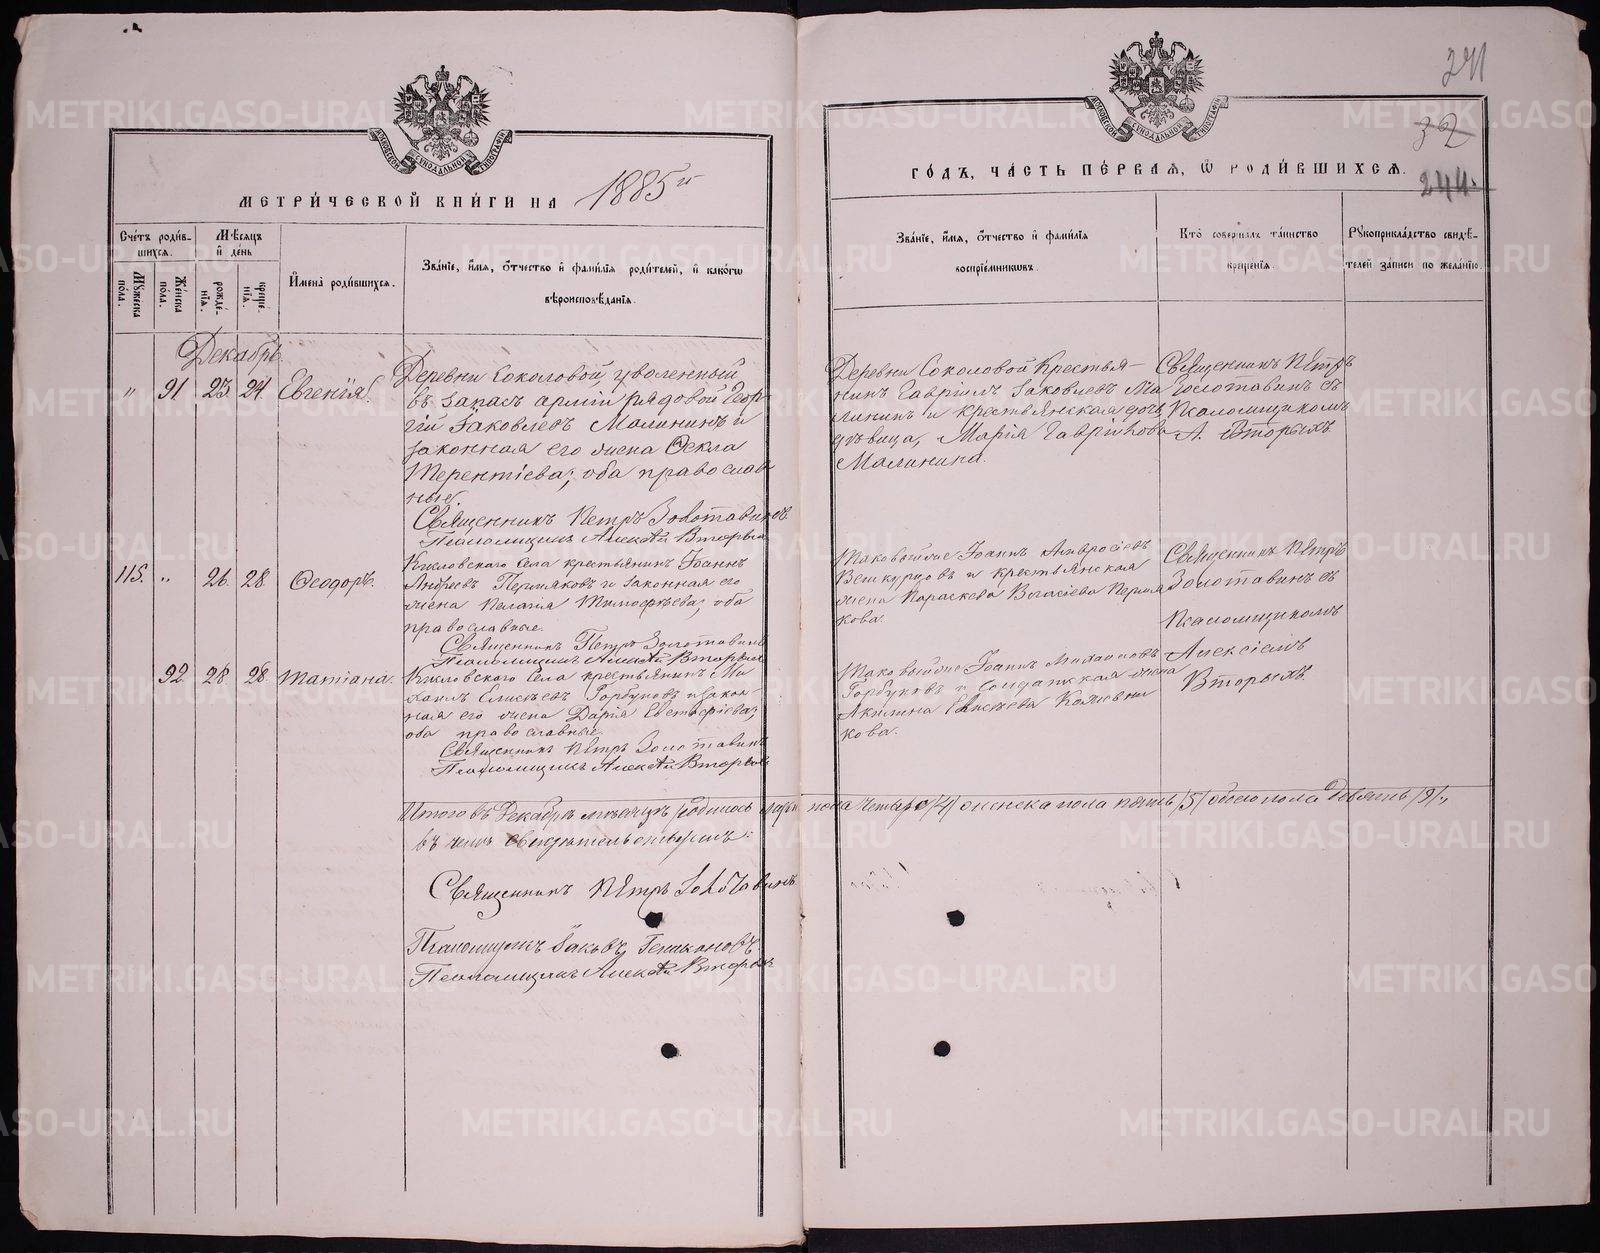 241
32
244.
МЕТРИ́ЧЕСКОЙ КНИ́ГИ НА 1885 й
ГО́ДЪ, ЧА́СТЬ ПЕ́РВАЯ, Ѡ РОДИ́ВШИХСЯ.
Сче́тъ роди́вшихся.
Му́жеска по́ла.
Же́нска по́ла.
Мѣ́сяцъ и де́нь
рожде́нїя.
креще́нїя.
И҆мена̀ роди́вшихся.
Зва́нїе, и҆́мя, ѻ҆́тчество и҆ фами́лїя роди́телей, и҆ како́гѡ
вѣроисповѣ́данїя.
Зва́нїе, и҆́мя, ѻ҆́тчество и҆ фами́лїя
воспрїе́мникѡвъ.
Кто̀ соверша́лъ та́инство
креще́нїя.
Рꙋкоприкла́дство свидѣ́телей за́писи по жела́нїю.
Декабрь.
" 91 23. 24. Евгенія.
Деревни Соколовой, уволенный
въ запасъ арміи рядовой Геор-
гій Іаковлевъ Малининъ и
законная его жена Ѳекла
Терентіева; оба православ-
ные.
Священникъ Петръ Золотавинъ
Псаломщикъ Алексѣй Вторыхъ
Деревни Соколовой Крестья-
нинъ Гавріилъ Іаковлевъ Ма
лининъ и крестьянская дочь
дѣвица, Марія Гаврилова
Малинина.
Священникъ Петръ
Золотавинъ съ
Псаломщикомъ
А. Вторыхъ.
115. " 26 28 Ѳеодоръ.
Кисловскаго Села крестьянинъ Іоаннъ
Андреевъ Пермяковъ и законная его
жена Пелагія Тимоѳеева; оба
православные.
Священникъ Петръ Золотавинъ
Псаломщикъ Алексѣй Вторыхъ
Таковойже Іоаннъ Амвросіевъ
и крестьянская
жена Параскева Пермя
кова.
Священникъ Петръ
Золотавинъ съ
Псаломщикомъ
Алексіемъ
Вторыхъ.
92 28 28. Татіана.
Кисловскаго Села крестьянинъ Ми
хаилъ Елисеевъ Горбуновъ и закон-
ная его жена Дарія Евстафіева;
оба православные.
Священникъ Петръ Золотавинъ
Псаломщикъ Алексѣй Вторыхъ
Таковойже Іоаннъ Михаиловъ
Горбуновъ и Солдатская жена
Акилина Елисеева
кова.
Итого въ Декабрѣ мѣсяцѣ родилось муж. пола четыре /4/ женска пола пять /5/ обоего пола девять /9/.,
въ чемъ свидѣтельствуемъ:
Священникъ Петръ Золотавинъ
Псаломщикъ Іаковъ
Псаломщикъ Алексѣй Вторыхъ
METRIKI.GASO-URAL.RU